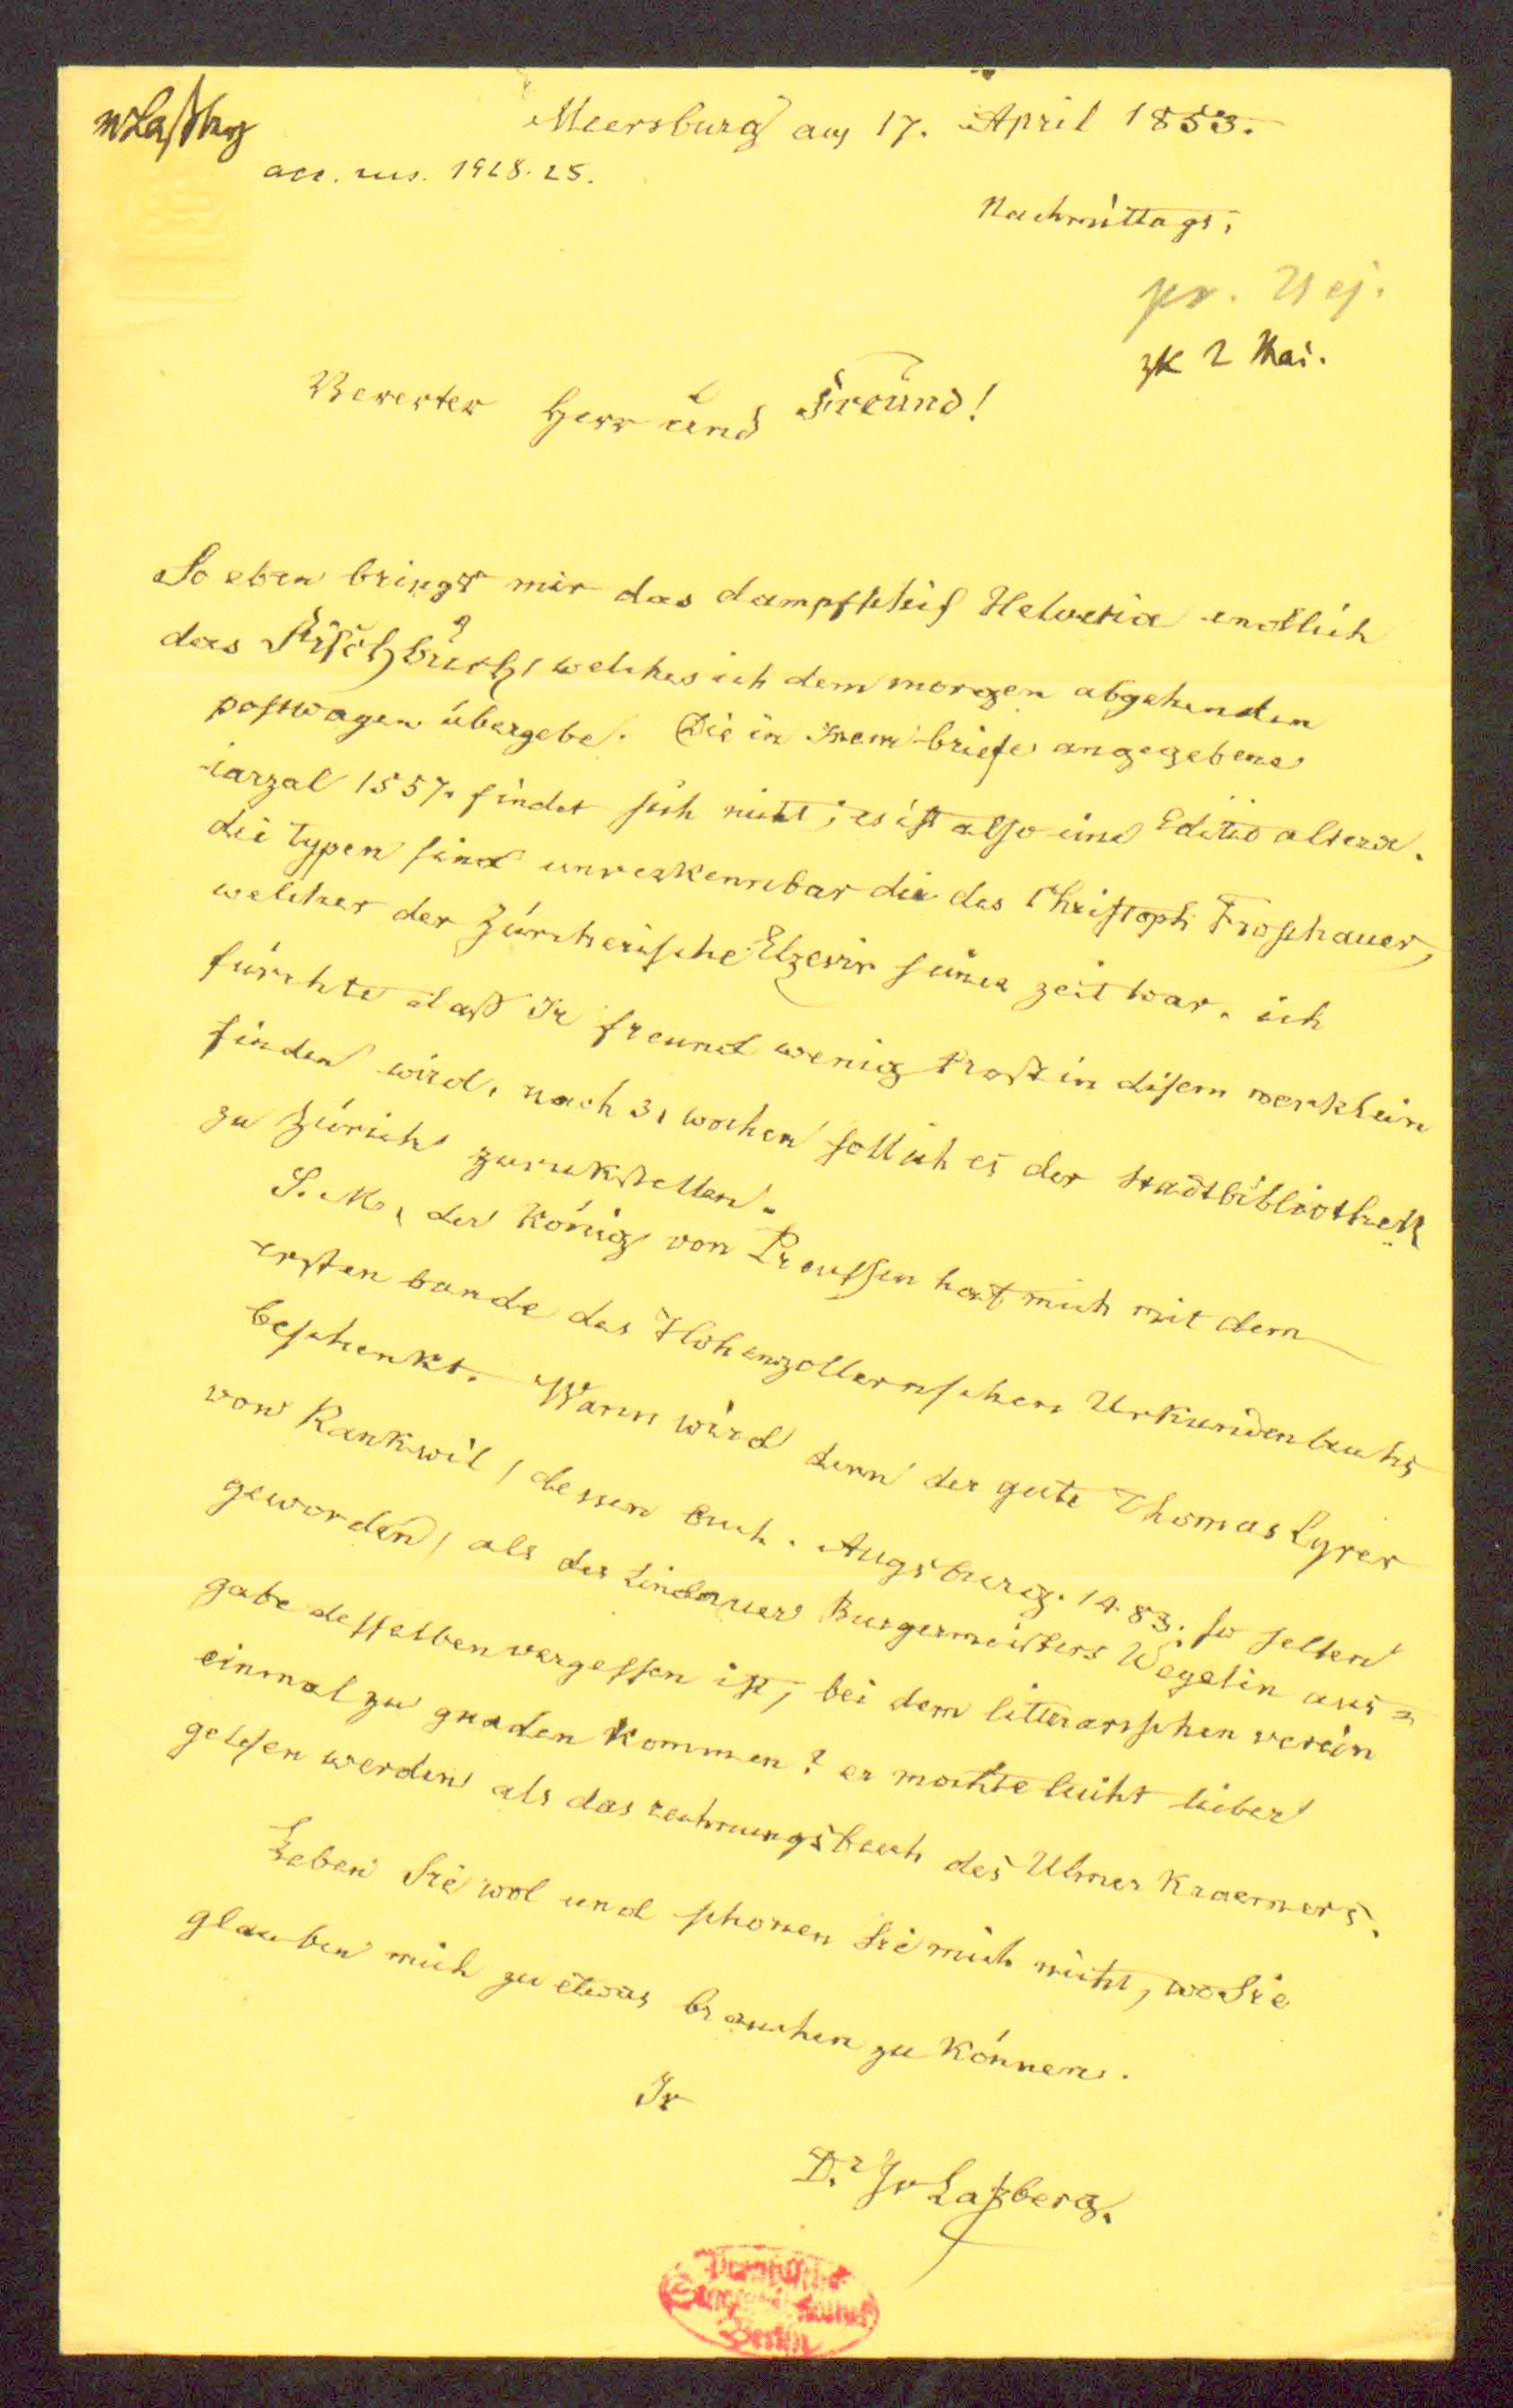 vLaßbg
acc. ms. 1928. 25.
Meersburg am 17. April 1853.
Nachmittags,
pr.
2 Mai.
Vererter Herr und Freund!
So eben bringt mir das dampfschif Helvetia endlich
das Fischbuch, welches ich dem morgen abgehenden
postwagen übergebe. Die in Irem briefe angegebene
iarzal 1557. findet sich nicht; es ist also eine Editio altera.
die typen sind unverkennbar die des Christoph Froschauer,
welcher der Zürcherische Elzevir seiner zeit war. ich
fürchte daß Ir freund wenig trost in disem werklein
finden wird. nach 3, wochen soll ich es der Stadtbibliothek
zu Zürich zurukstellen.
S. M. der König von Preussen hat mich mit dem
ersten bande des Hohenzollernschen Urkundenbuchs
beschenkt. Wann wird denn der gute Thomas Lyrer
von Rankwil, dessen buch. Augsburg. 1483. so selten
geworden, als des Lindauer Burgermeisters Wegelin aus=
gabe desselben vergessen ist, bei dem litterarischen verein
einmal zu gnaden kommen? er mochte leicht lieber
gelesen werden als das rechnungsbuch des Ulmer Kraemers.
Leben Sie wol und schonen Sie mich nicht, wo Sie
glauben mich zu etwas brauchen zu können.
Ir
D.r JvLaßberg.
Preußische
Staatsbibliothek
Berlin